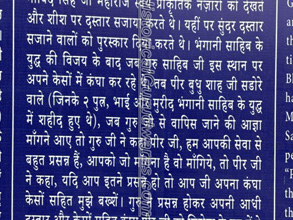 सिंह जी महाराज स्वयं प्राकृतिक नज़ारों को देखते
और शीश पर दस्तार सजाया करते थे। यहीं पर सुंदर दस्तार
सजाने वालों को पुरस्कार दिया करते थे। भंगानी साहिब के
युद्ध की विजय के बाद जब गुरु जी साहिब इस स्थान पर
अपने केसों में कंघा कर रहे थे, तब पीर बुधु शाह जी सढोरे
वाले (जिनके २ पुत्र, भाई और मुरीद भंगाणी साहिब के युद्ध
में शहीद हुए थे), जब गुरु जी से वापिस जाने की आज्ञा
माँगने आए तो गुरु जी ने कहा पीर जी, हम आपकी सेवा से
बहुत प्रसन्न हैं, आपको जो माँगना है वो माँगिये, तो पीर जी
ने कहा, यदि आप इतने प्रसन्न हो तो आप जी अपना कंघा
केसों सहित मुझे बख्शें। गुरु जी प्रसन्न होकर अपनी आधी